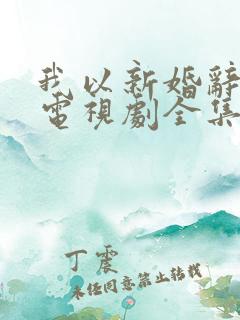 我以新婚辭
電視劇全集
丁震
未经同意禁止转载